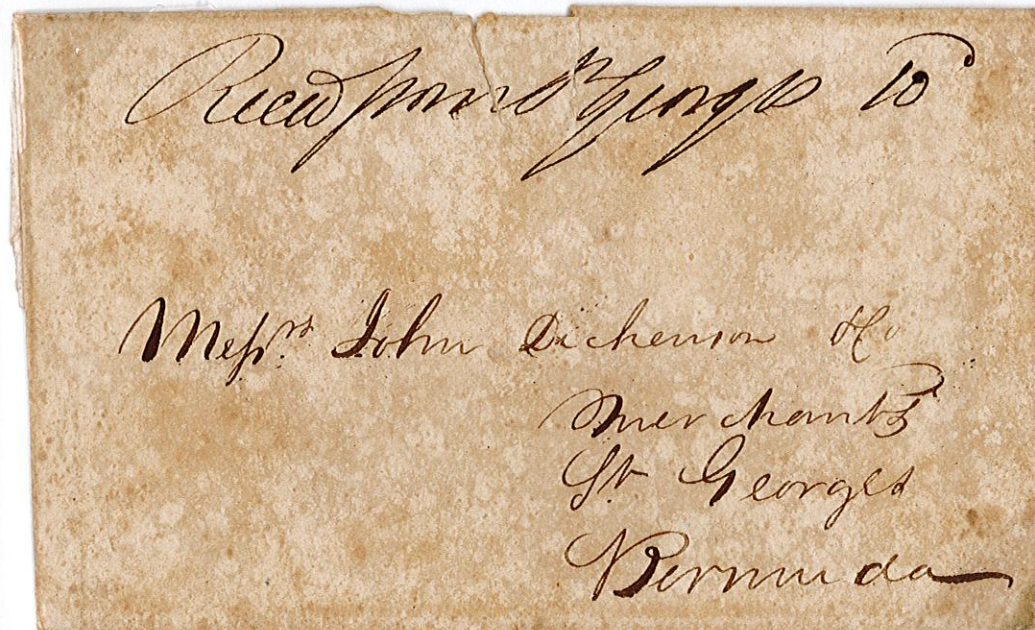 Recd from St Georges 10
Messrs. John Dickenson & Co
Merchants
St Georges
Bermuda